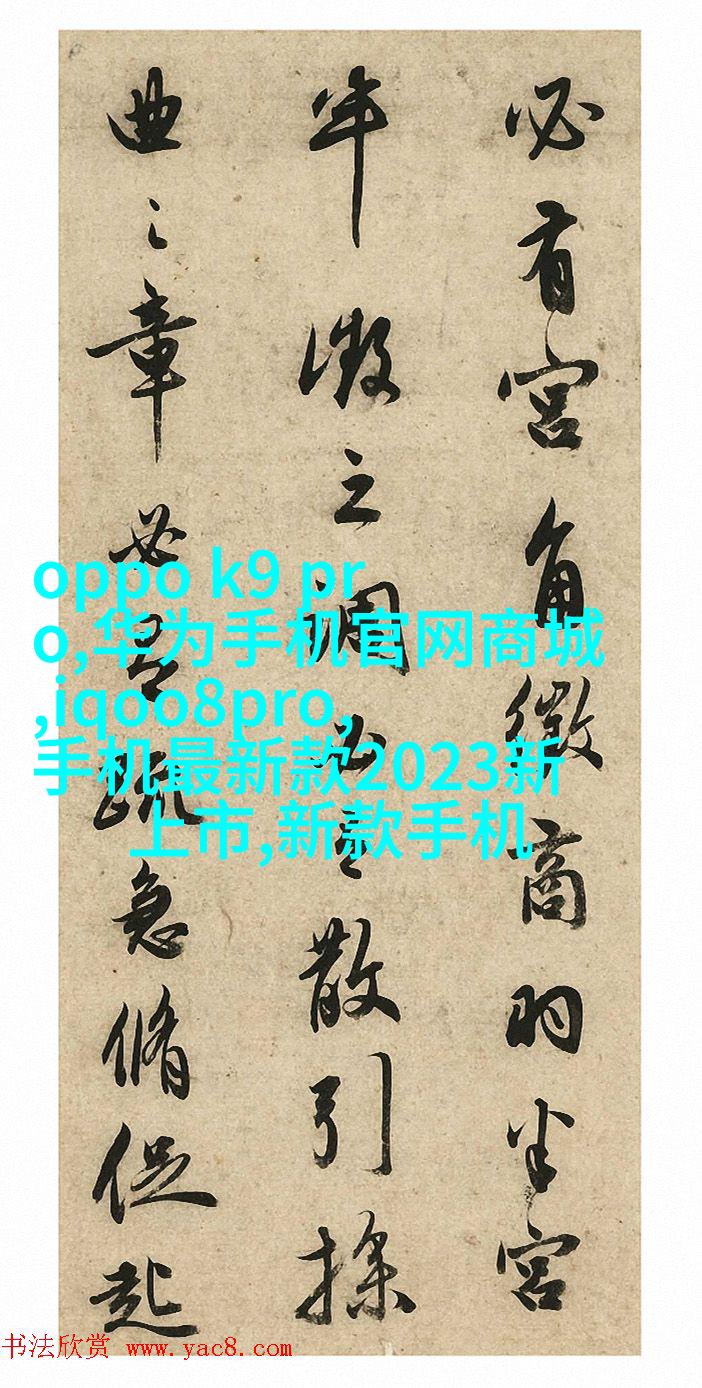 必有宮角徵商羽半宮
半徵之調必散引操
曲之章必疏急脩促起
oppo k9 pr
o,华为手机官网商城
,iqoo8pro,
手机最新款2023新
上市,新款手机
书法欣赏 www.yac8.com